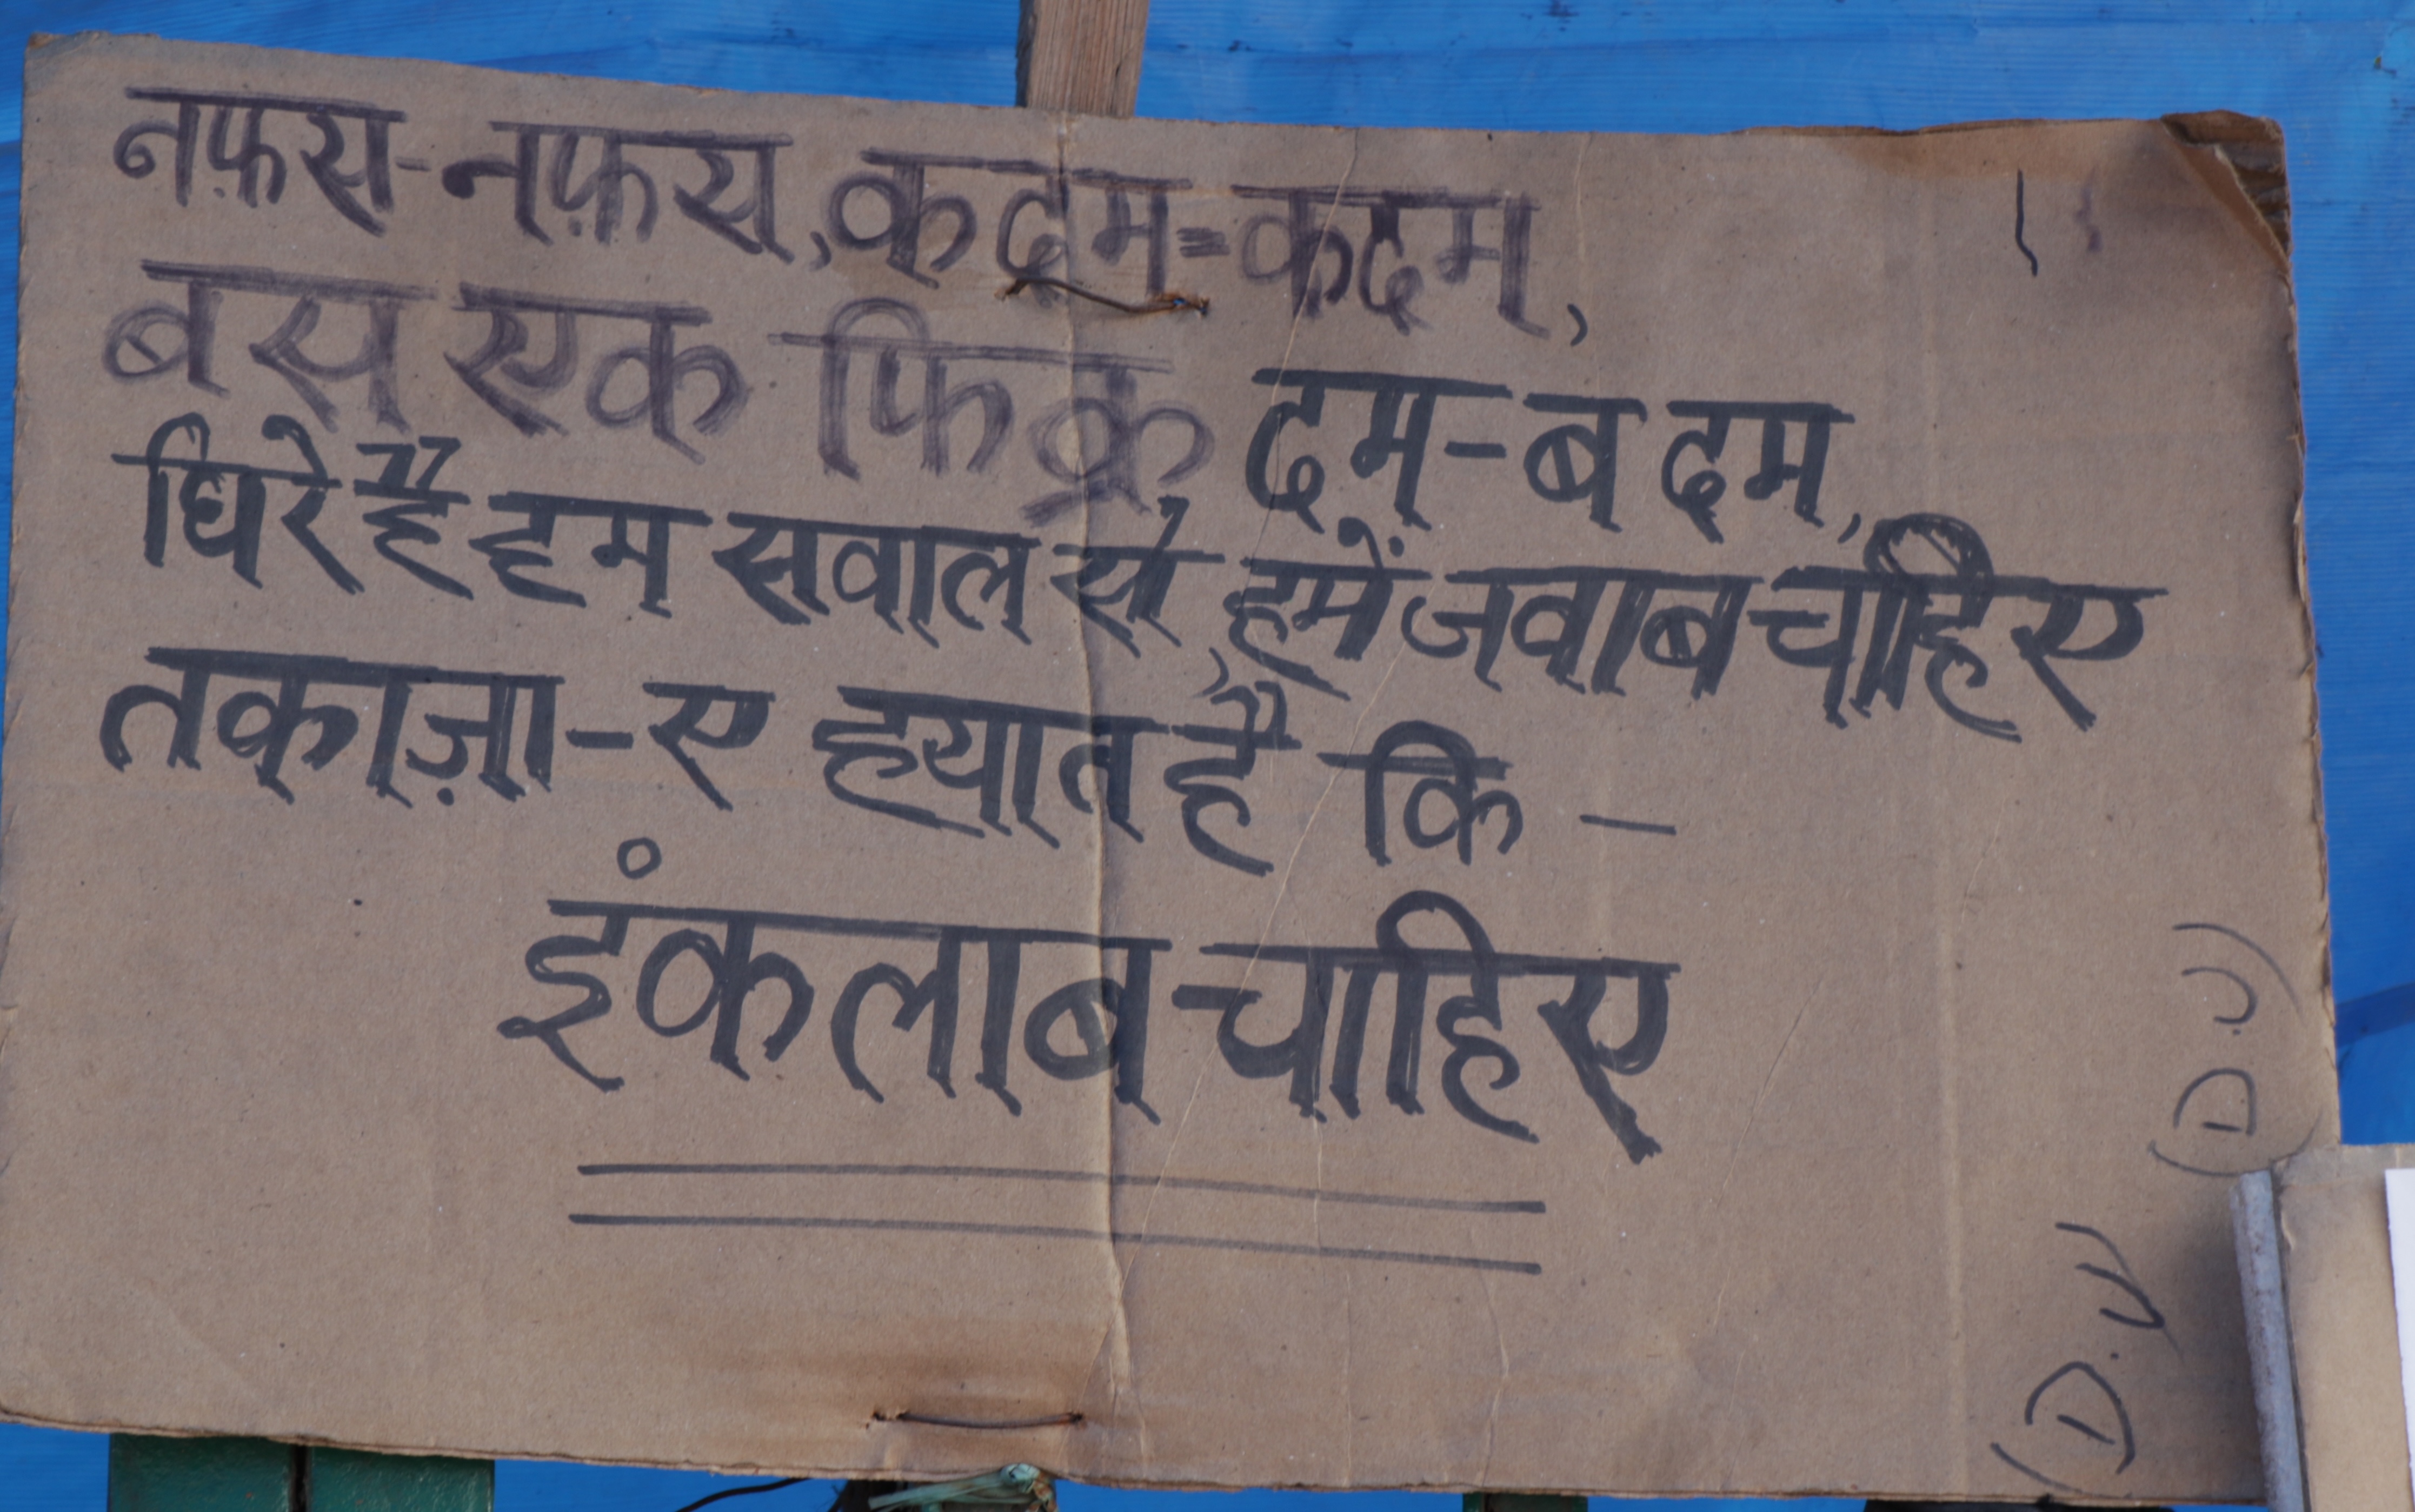 नफ़स-नफ़स, क़दम-कदम,
बस एक फिक्र दम-ब दम,
घिरे हैं हम सवाल से, हमें जवाब चाहिए
तकाज़ा-ए हयात है कि -
इंकलाब चाहिए
(D.U)
(D.U)